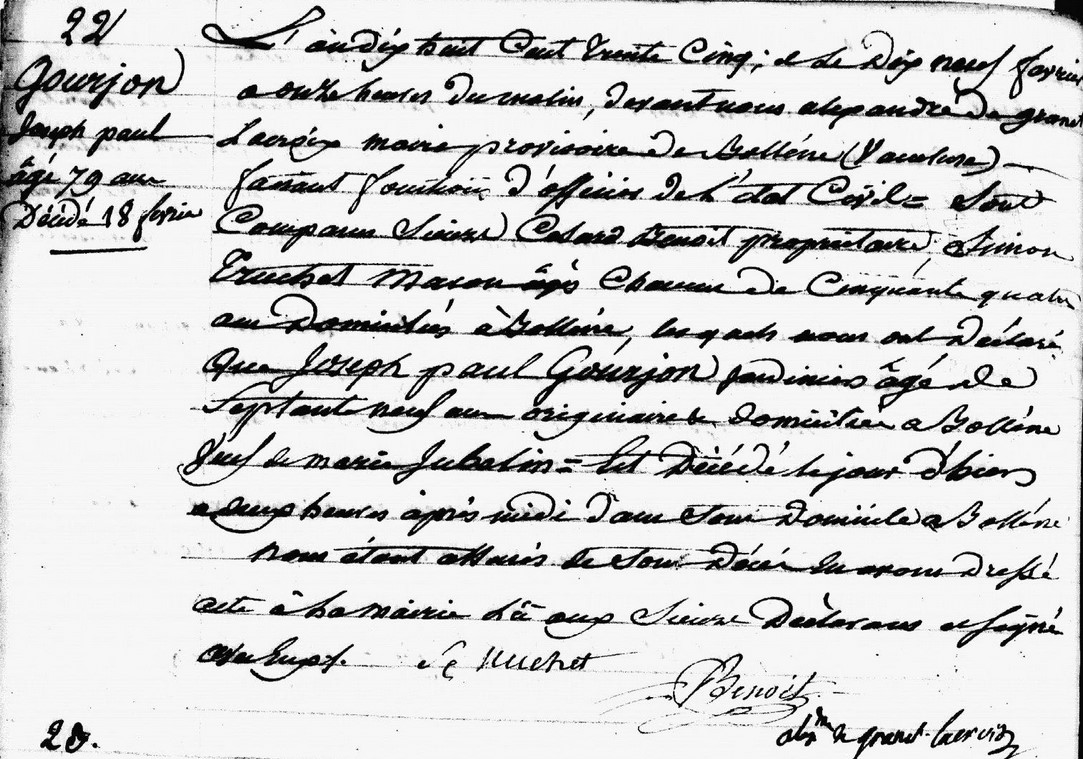 22
Gourjon
Joseph paul
âgé 79 ans
Décédé 18 fevrier
L'an dix huit Cent trente Cinq; et le Dix neuf fevrier
a onze heures du matin, devant nous alexandre de granet
Lacroix maire provisoire de Bollène (Vaucluse)
faisant fonction d'officier de L'état Civil = Sont
Comparus Sieurs Benoit propriétaire, Simon
Truchet Macon âgés Chacun de Cinquante quatre
ans Domiciliés à Bollène, lesquels nous ont Déclaré
Que Joseph paul Gourjon jardinier âgé de
Septante neuf ans originaire & domicilié a Bollène
Veuf de marie = Est Décédé le jour d'hier
a deux heures après midi dans Son Domicile a Bollène
Nous étant assurés de Son Décès En avons Dressé
acte à La mairie Lû aux Sieurs Déclarans et Signé
avec Eux.
Truchet
Benoit
alexdre de granet-lacroix
23.